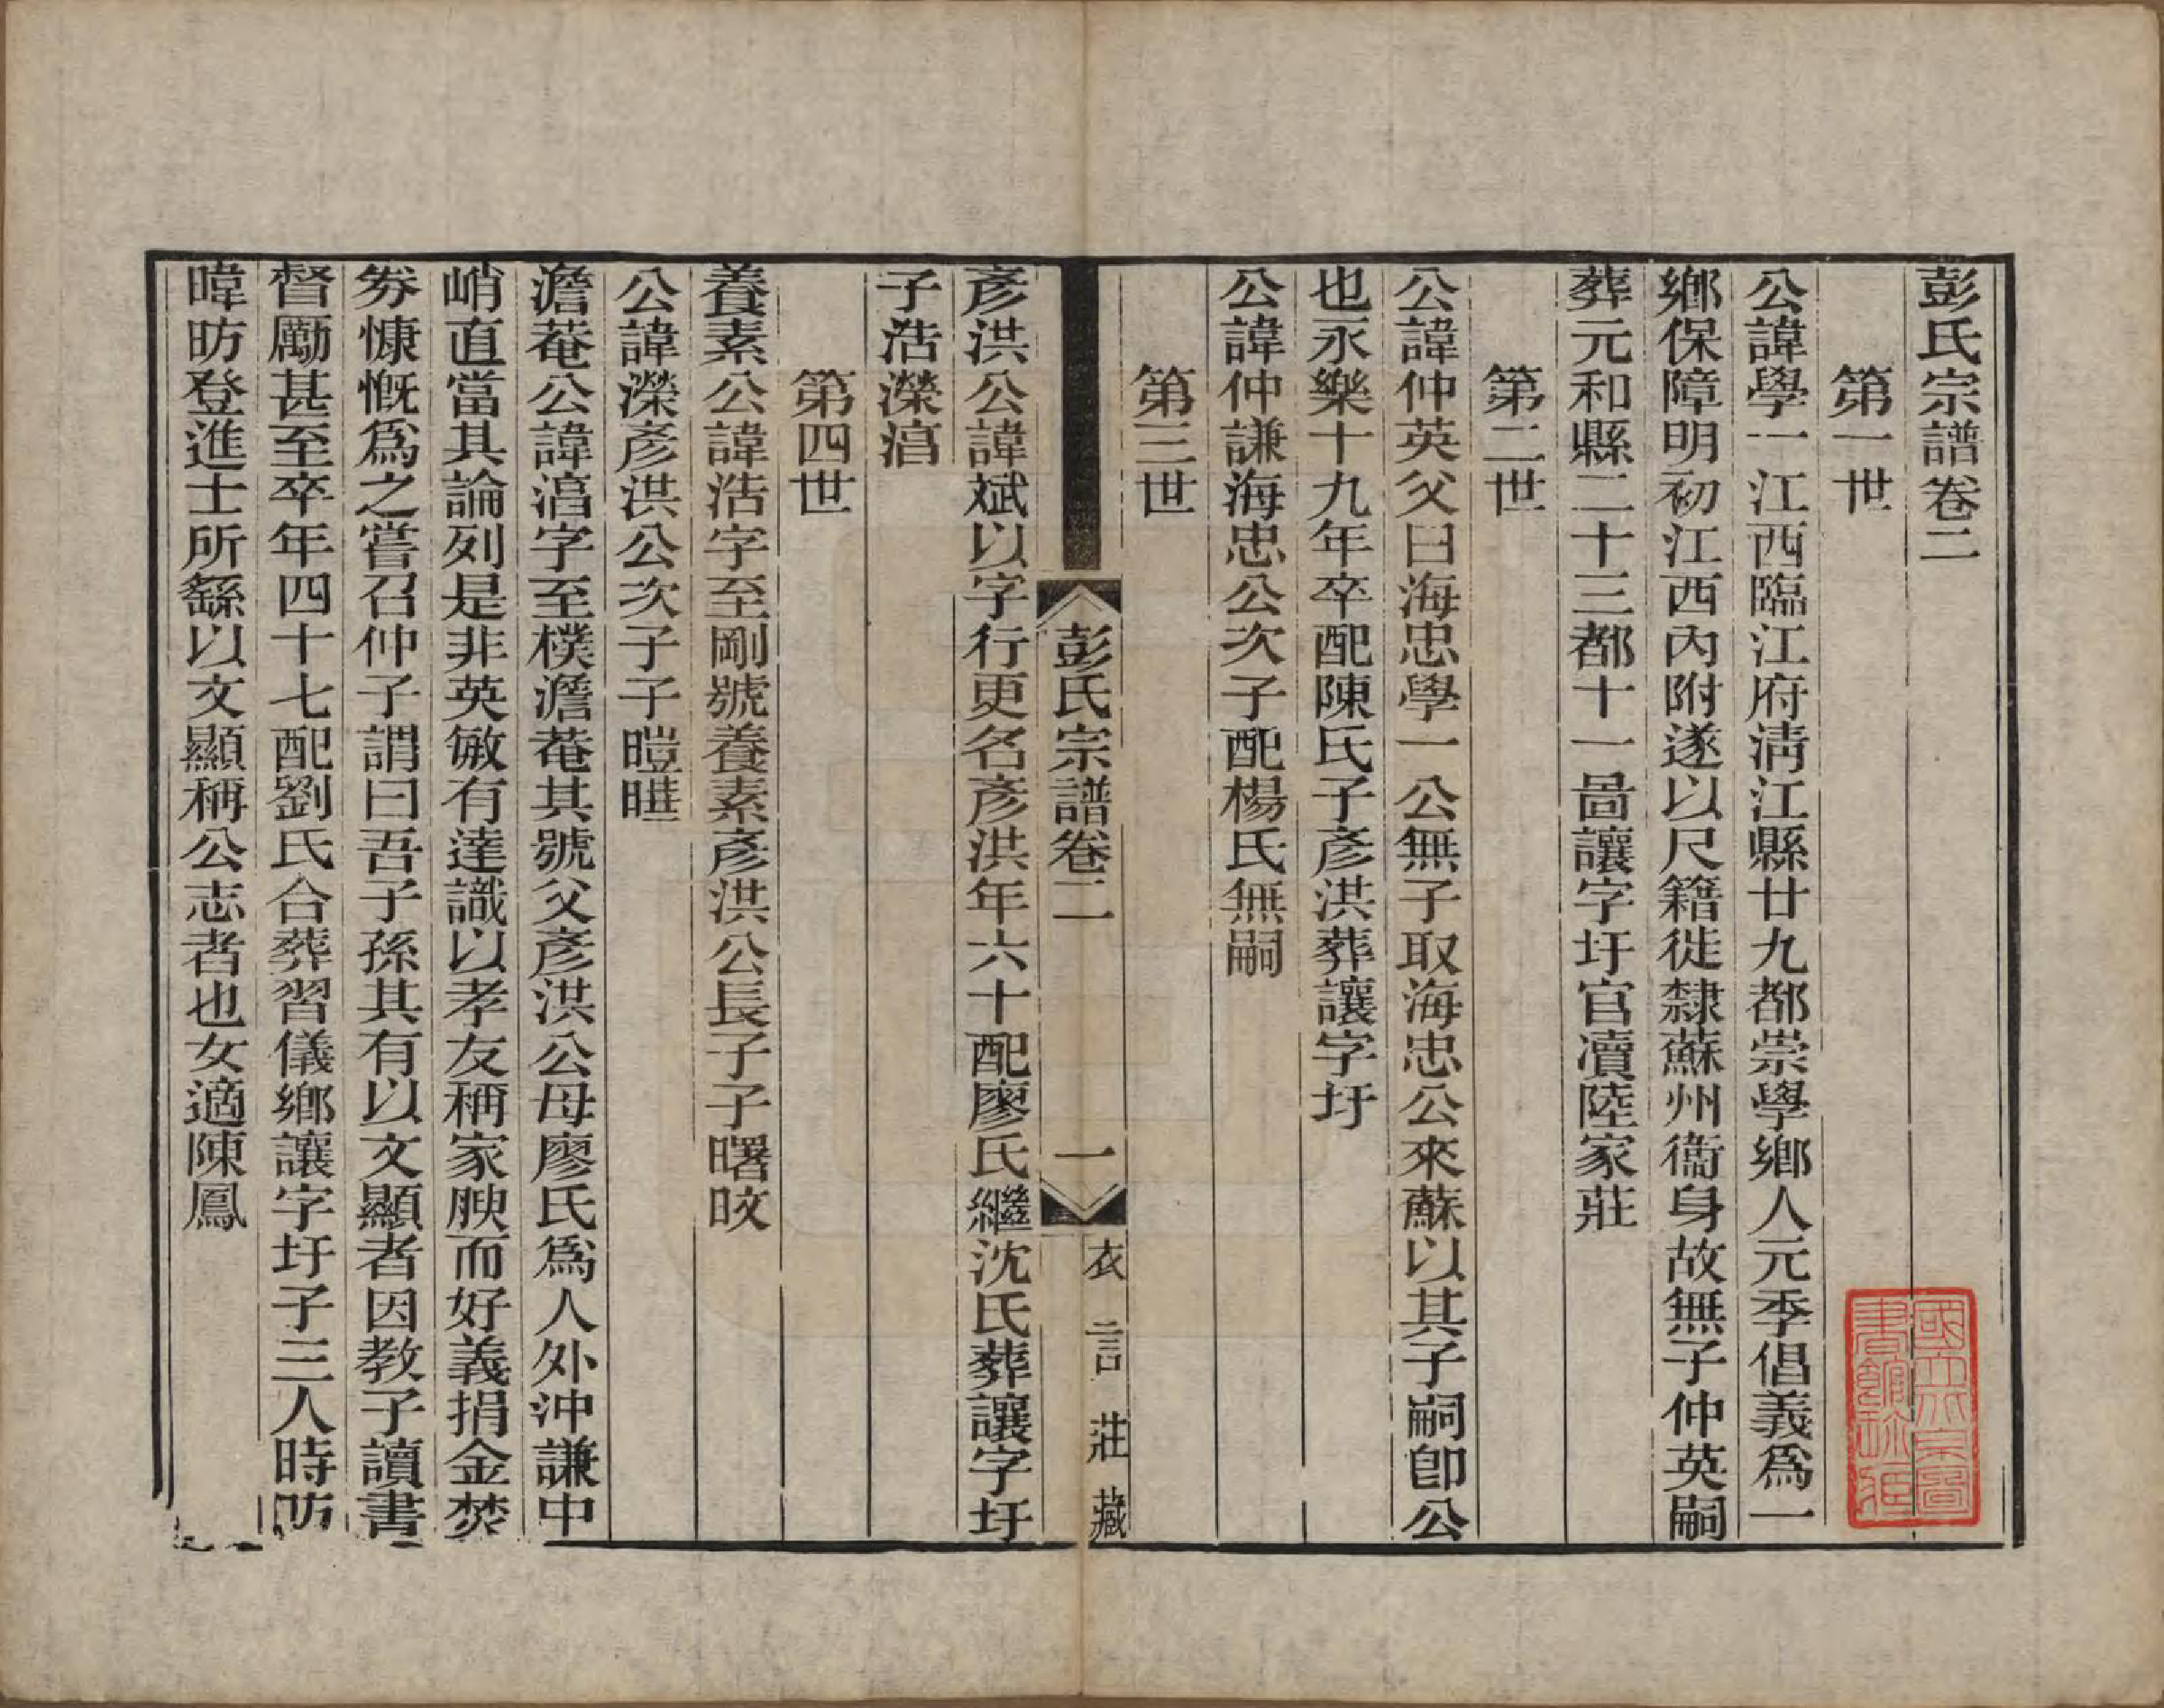 彭氏宗譜卷二
第一世
公諱學一江西臨江府淸江縣廿九都崇學鄉人元季倡義爲一
鄉保障明初江西內附遂以尺籍徙隸蘇州衞身故無子仲英嗣
葬元和縣二十三都十一啚讓字圩官瀆陸家莊
第二世
公諱仲英父曰海忠學一公無子取海忠公來蘇以其子嗣卽公
也永樂十九年卒配陳氏子彥洪葬讓字圩
公諱仲謙海忠公次子配楊氏無嗣
第三世
彭氏宗譜卷二
一
衣言莊藏
彥洪公諱斌以字行更名彥洪年六十配廖氏繼沈氏葬讓字圩
子浩濴淐
第四世
養素公諱浩字至剛號養素彥洪公長子子曙晈
公諱濴彥洪公次子子暟暀
澹菴公諱淐字至樸澹菴其號父彥洪公母廖氏爲人外沖謙中
峭直當其論列是非英敏有達識以孝友稱家腴而好義捐金焚
券慷慨爲之嘗召仲子謂曰吾子孫其有以文顯者因敎子讀書
督勵甚至卒年四十七配劉氏合葬習儀鄉讓字圩子三人時昉
暐昉登進士所繇以文顯稱公志者也女適陳鳳
國立北京圖
書館珍藏